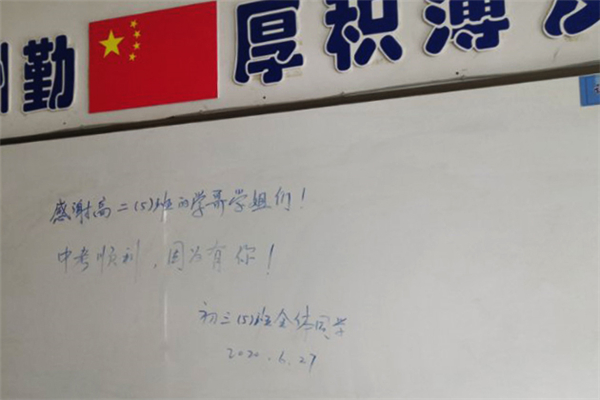 勤 厚积薄
感谢高二(5)班的学哥学姐们!
中考顺利,因为有你!
初三(5)班全体同学
2020.6.27